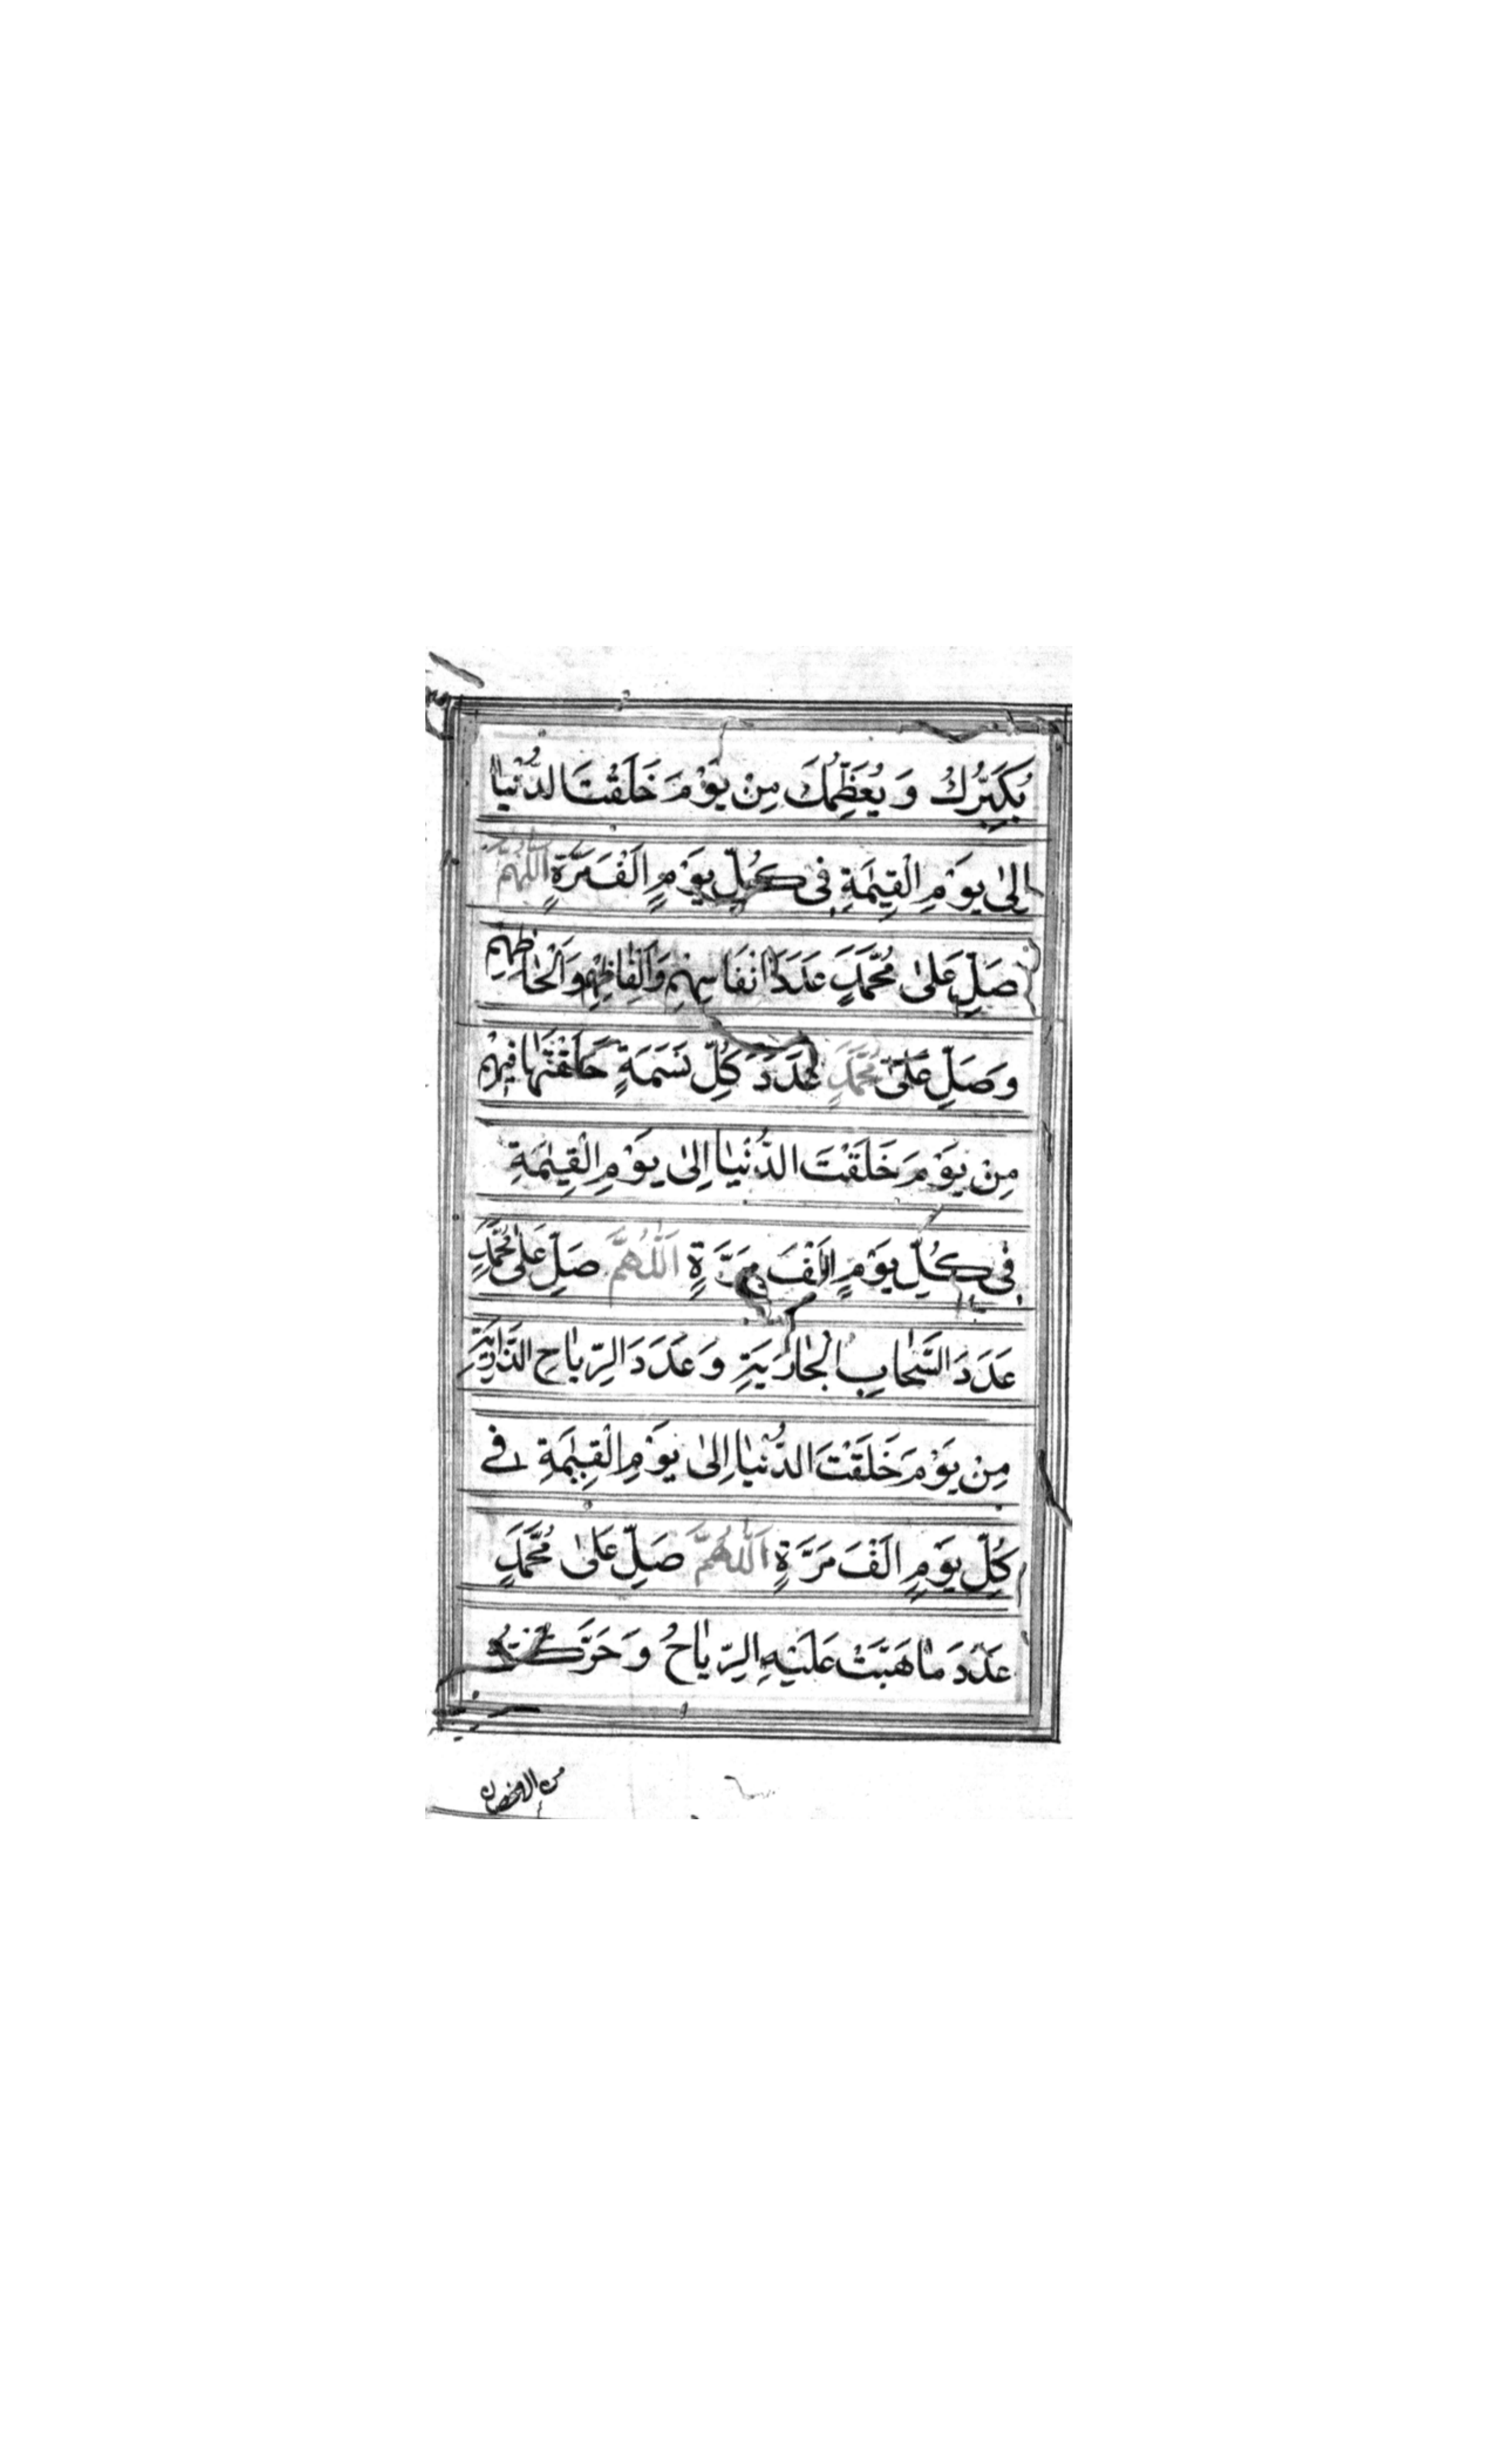 يُكَبِّرُكَ وَ يُعَظِّمُكَ مِنْ يَوْمَ خَلَقْتَ الدُّنْيَا
اِلٰى يَوْمِ الْقِيٰمَةِ فِى كُلِّ يَوْمٍ اَلْفَ مَرَّةٍ اَللّٰهُمَّ
صَلِّ عَلٰى مُحَمَّدٍ عَدَدَ اَنْفَاسِهِمْ وَاَلْفَاظِهِمْ وَاَلْحَاظِهِمْ
وَصَلِّ عَلٰى مُحَمَّدٍ عَدَدَ كُلِّ نَسَمَةٍ خَلَقْتَهَا فِيْهِمْ
مِنْ يَوْمَ خَلَقْتَ الدُّنْيَا اِلٰى يَوْمِ الْقِيٰمَةِ
فِى كُلِّ يَوْمٍ اَلْفَ مَرَّةٍ اَللّٰهُمَّ صَلِّ عَلٰى مُحَمَّدٍ
عَدَدَ السَّحَابِ الْجَارِيَةِ وَ عَدَدَ الرِّيَاحِ الذَّارِيَةِ
مِنْ يَوْمَ خَلَقْتَ الدُّنْيَا اِلٰى يَوْمِ الْقِيٰمَةِ فِى
كُلِّ يَوْمٍ اَلْفَ مَرَّةٍ اَللّٰهُمَّ صَلِّ عَلٰى مُحَمَّدٍ
عَدَدَ مَا هَبَّتْ عَلَيْهِ الرِّيَاحُ وَ حَرَّكَتْهُ
من الاغصان